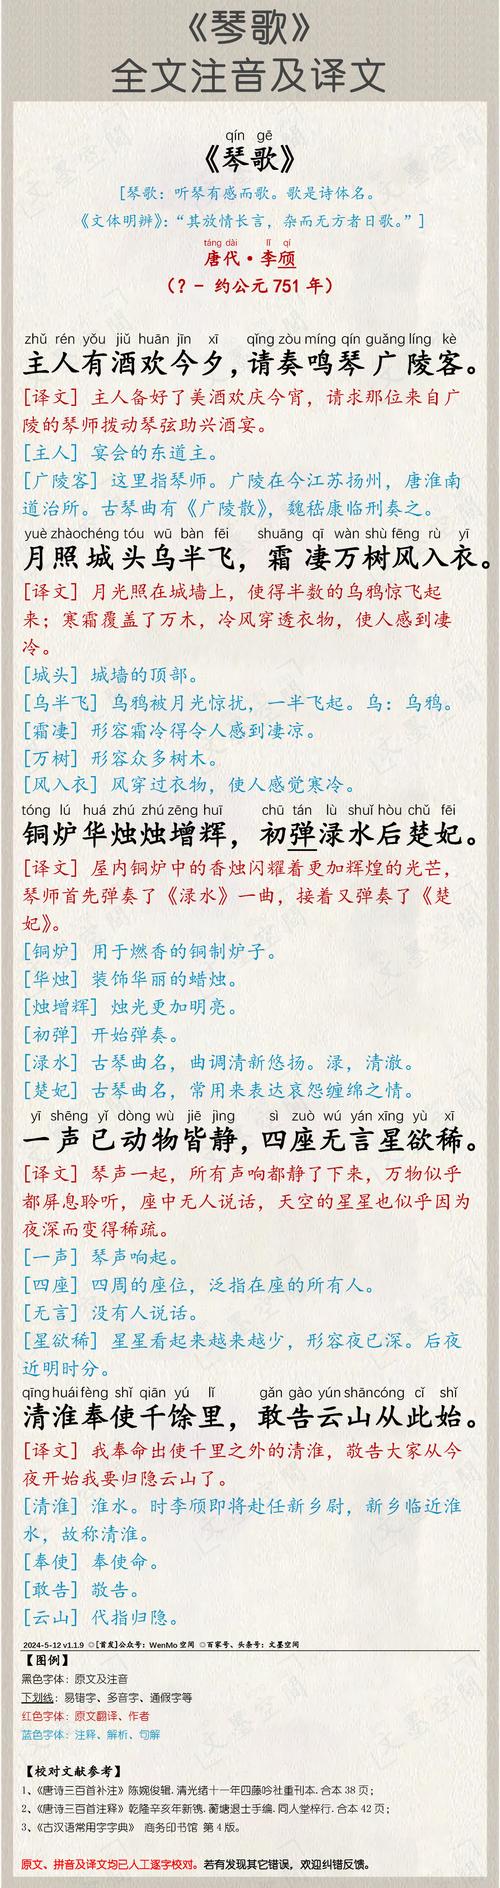 《琴歌》
全文注音及译文
qín gē
《琴歌》
[琴歌：听琴有感而歌。歌是诗体名。
《文体明辨》：“其放情长言，杂而无方者曰歌。”]
táng dài lǐ qí
唐代·李颀
（？- 约公元 751 年）
zhǔ rén yǒu jiǔ huān jīn xī qǐng zòu míng qín guǎng líng kè
主人有酒欢今夕，请奏鸣琴广陵客。
[译文] 主人备好了美酒欢庆今宵，请求那位来自广
陵的琴师拨动琴弦助兴酒宴。
[主人] 宴会的东道主。
[广陵客] 这里指琴师。广陵在今江苏扬州，唐淮南
道治所。古琴曲有《广陵散》，魏嵇康临刑奏之。
yuè zhào chéng tóu wū bàn fēi shuāng qī wàn shù fēng rù yī
月照城头乌半飞，霜凄万树风入衣。
[译文] 月光照在城墙上，使得半数的乌鸦惊飞起
来；寒霜覆盖了万木，冷风穿透衣物，使人感到凄
冷。
[城头] 城墙的顶部。
[乌半飞] 乌鸦被月光惊扰，一半飞起。乌：乌鸦。
[霜凄] 形容霜冷得令人感到凄凉。
[万树] 形容众多树木。
[风入衣] 风穿过衣物，使人感觉寒冷。
tóng lú huá zhú zhú zēng huī chū tán lù shuǐ hòu chǔ fēi
铜炉华烛烛增辉，初弹渌水后楚妃。
[译文] 屋内铜炉中的香烛闪耀着更加辉煌的光芒，
琴师首先弹奏了《渌水》一曲，接着又弹奏了《楚
妃》。
[铜炉] 用于燃香的铜制炉子。
[华烛] 装饰华丽的蜡烛。
[烛增辉] 烛光更加明亮。
[初弹] 开始弹奏。
[渌水] 古琴曲名，曲调清新悠扬。渌，清澈。
[楚妃] 古琴曲名，常用来表达哀怨缠绵之情。
yī shēng yǐ dòng wù jiē jìng sì zuò wú yán xīng yù xī
一声已动物皆静，四座无言星欲稀。
[译文] 琴声一起，所有声响都静了下来，万物似乎
都屏息聆听，座中无人说话，天空的星星也似乎因为
夜深而变得稀疏。
[一声] 琴声响起。
[四座] 四周的座位，泛指在座的所有人。
[无言] 没有人说话。
[星欲稀] 星星看起来越来越少，形容夜已深。后夜
近明时分。
qīng huái fèng shǐ qiān yú lǐ gǎn gào yún shān cóng cǐ shǐ
清淮奉使千馀里，敢告云山从此始。
[译文] 我奉命出使千里之外的清淮，敬告大家从今
夜开始我要归隐云山了。
[清淮] 淮水。时李颀即将赴任新乡尉，新乡临近淮
水，故称清淮。
[奉使] 奉使命。
[敢告] 敬告。
[云山] 代指归隐。
2024-5-12 v1.1.9 ◎[首发]公众号：WenMo 空间 ◎百家号、头条号：文墨空间
【图例】
黑色字体：原文及注音
下划线：易错字、多音字、通假字等
红色字体：原文翻译、作者
蓝色字体：注释、解析、句解
【校对文献参考】
1、《唐诗三百首补注》陈婉俊辑.清光绪十一年四藤吟社重刊本.合本 38 页；
2、《唐诗三百首注释》乾隆辛亥年新镌.蘅塘退士手编.同人堂梓行.合本 42 页；
3、《古汉语常用字字典》 商务印书馆 第 4 版。
原文、拼音及译文均已人工逐字校对。若有发现其它错误，欢迎纠错反馈。